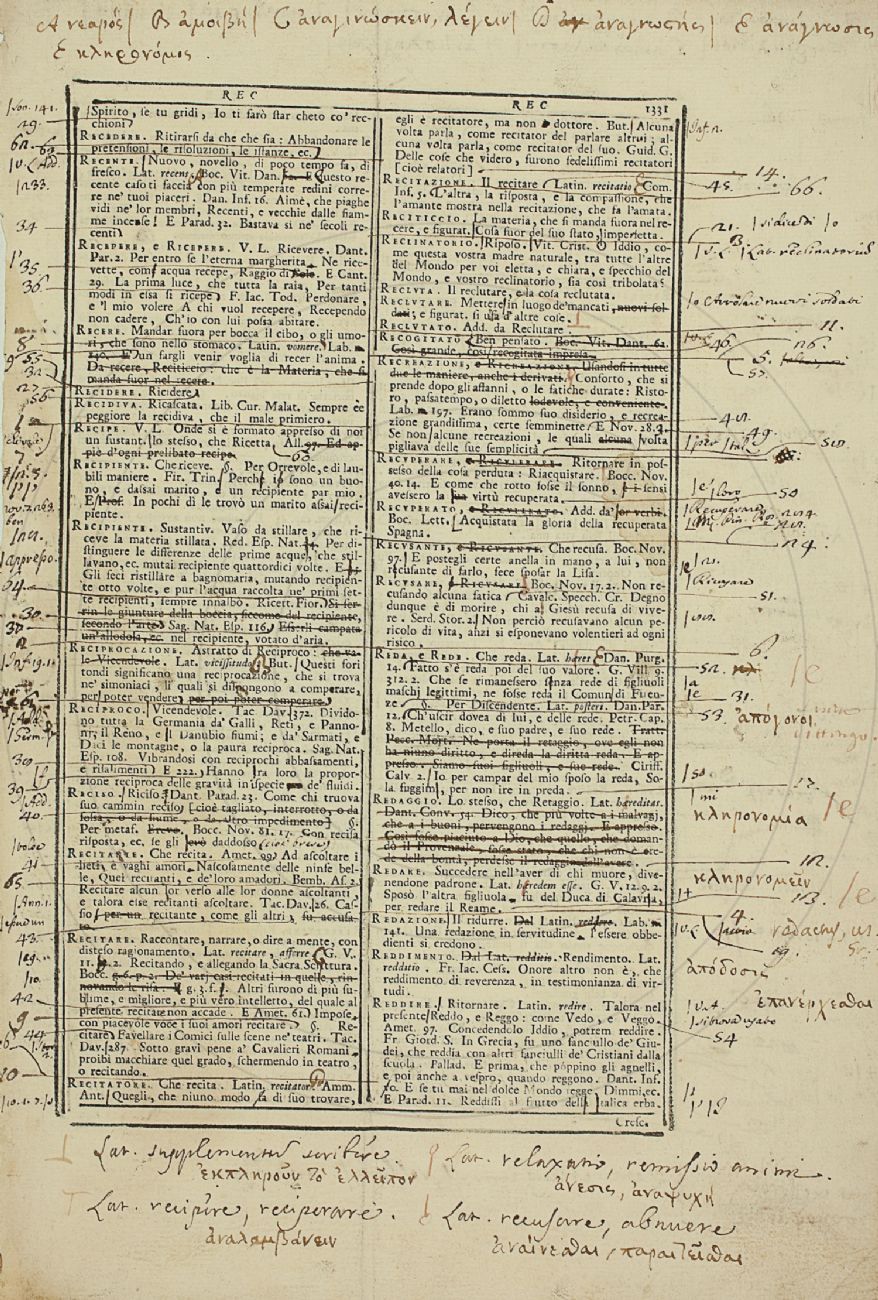 Α νεαρός| Β ἀμοιβή| C ἀναγινώσκειν, λέγειν| D ἀναγνωστής| E ἀνάγνωσις
κληρονόμος.
REC
REC 1331
Spirito, se tu gridi, Io ti farò star cheto co' rec-
chioni
RECEDERE. Ritirarsi da che che sia: Abbandonare le
pretensioni, le risoluzioni, le istanze, ec.
RECENTE. Nuovo, novello, di poco tempo fa, di
fresco. Lat. recens. Boc. Vit. Dan. Questo re-
cente caso ti faccia con più temperate redini corre-
re ne' tuoi piaceri. Dan. Inf. 16. Aimè, che piaghe
vidi ne' lor membri, Recenti, e vecchie dalle fiam-
me incense! E Parad. 32. Bastava sì ne' secoli re-
centi
RECEPERE, e RICEPERE. V. L. Ricevere. Dant.
Par. 2. Per entro se l'eterna margherita. Ne rice-
vette, com' acqua recepe, Raggio di E Cant.
29. La prima luce, che tutta la raia, Per tanti
modi in essa si ricepe F. Iac. Tod. Perdonare,
e 'l mio volere A chi vuol recepere, Recependo
non cadere, Ch'io con lui possa abitare.
RECERE. Mandar fuora per bocca il cibo, o gli umo-
ri, che sono nello stomaco. Latin. vomere. Lab.
E un fargli venir voglia di recer l'anima.
Da recere, Reciticcio: che è la Materia, che si
manda fuor nel recere.
RECIDERE. Ricidere
RECIDIVA. Ricascata. Lib. Cur. Malat. Sempre è
peggiore la recidiva, che il male primiero.
RECIPE. V. L. Onde si è formato appresso di noi
un sustant. lo stesso, che Ricetta. All. 97. Ed ap-
piè d'ogni prelibato recipe.
RECIPIENTE. Che riceve. §. Per Orrevole, e di lau-
bili maniere. Fir. Trin. Perchè io sono un buo-
no, e dassai marito, e un recipiente par mio.
E Prof. In pochi dì le trovò un marito assai reci-
piente.
RECIPIENTE. Sustantiv. Vaso da stillare, che ri-
ceve la materia stillata. Red. Esp. Nat. 4. Per di-
stinguere le differenze delle prime acque, che stil-
lavano, ec. mutai recipiente quattordici volte. E
Gli feci ristillare a bagnomaria, mutando recipien-
te otto volte, e pur l'acqua raccolta ne' primi set-
te recipienti, sempre innalbò. Ricett. Fior. Si ser-
rin le giunture della boccia, siccome del recipiente,
secondo l'arte. Sag. Nat. Esp. 116. Esserli campata
un'allodola, ec. nel recipiente, votato d'aria.
RECIPROCAZIONE. Astratto di Reciproco: che va-
le Vicendevole. Lat. vicissitudo. But. Questi fori
tondi significano una reciprocazione, che si trova
ne' simoniaci, li quali si dispongono a comperare,
per poter vendere, per poi poter comperare.
RECIPROCO. Vicendevole. Tac Dav. 372. Divido-
no tutta la Germania da' Galli, Reti, e Panno-
ni, il Reno, e il Danubio fiumi; e da' Sarmati, e
Daci le montagne, o la paura reciproca. Sag. Nat.
Esp. 108. Vibrandosi con reciprochi abbassamenti,
e risalimenti E 222. Hanno fra loro la propor-
zione reciproca delle gravità in specie de' fluidi.
RECISO. Riciso. Dant. Parad. 23. Come chi truova
suo cammin reciso [cioè tagliato, interrotto, o da
fossa, o da fiume, o da altro impedimento] §.
Per metaf. Breve. Bocc. Nov. 81. 17. Con recisa
risposta, ec. se gli levò daddosso
RECITARE. Che recita. Amet. 99. Ad ascoltare i
lieti, e vaghi amori, Nascosamente delle ninfe bel-
le, Quei recitanti, e de' loro amadori. Bemb. As. 2.
Recitare alcun lor verso alle lor donne ascoltanti
e talora esse recitanti ascoltare. Tac. Dav. 26. Cas-
sio, per un recitante, come gli altri, fu accusa-
to.
RECITARE. Raccontare, narrare, o dire a mente, con
disteso ragionamento. Lat. recitare, afferre G. V.
11. 2. Recitando, e allegando la Sacra Scrittura.
Bocc. g. 8. p. 2. De' vari casi recitati in quelle, rin-
novando le risa. E g. 3. f. Altri furono di più su-
blime, e migliore, e più vero intelletto, del quale al
presente recitare non accade. E Amet. 61. Impose,
con piacevole voce i suoi amori recitare. §. Re-
citare: Favellare i Comici sulle scene ne' teatri. Tac.
Dav. 287. Sotto gravi pene a' Cavalieri Romani
proibì macchiare quel grado, schermendo in teatro,
o recitando.
RECITATORE. Che recita. Latin. recitator Amm.
Ant. Quegli, che niuno modo sa di suo trovare,
egli è recitatore, ma non dottore. But. Alcuna
volta parla, come recitator del parlare altrui; al-
cuna volta parla, come recitatore del suo. Guid. G.
Delle cose che videro, furono fedelissimi recitatori
[cioè relatori]
RECITAZIONE. Il recitare Latin. recitatio Com.
Inf. 5. L'altra, la risposta, e la compassione, che
l'amante mostra nella recitazione, che fa l'amata.
RECITICCIO. La materia, che si manda fuora nel re-
cere, e figurat. Cosa fuor del suo stato, imperfetta.
RECLINATORIO. Riposo. Vit. Crist. O Iddio, co-
me questa vostra madre naturale, tra tutte l'altre
del Mondo per voi eletta, e chiara, e specchio del
Mondo, e vostro reclinatorio, sia così tribolata?
RECLUTA. Il reclutare, e la cosa reclutata.
RECLUTARE. Mettere in luogo de' mancati, nuovi sol-
dati; e figurat. si usa d'altre cose.
RECLUTATO. Add. da Reclutare.
RECOGITATO Ben pensato. Bocc. Vit. Dant. 62.
Così grande, così recogitata impresa.
RECREAZIONE, e RICREAZIONE. Usandosi in tutte
due le maniere, anche i derivati. Conforto, che si
prende dopo gli affanni, o le fatiche durate: Risto-
ro, passatempo, o diletto lodevole, e conveniente.
Lab. 197. Erano sommo suo disiderio, e recrea-
zione grandissima, certe femminette E Nov. 28. 3.
Se non alcune recreazioni, le quali alcuna volta
pigliava delle sue semplicità
RECUPERARE, e RICUPERARE. Ritornare in pos-
sesso della cosa perduta: Riacquistare. Bocc. Nov.
40. 14. E come che rotto fosse il sonno, i sensi
avessero la virtù recuperata.
RECUPERATO, e RICUPERATO. Add. da' lor verbi.
Bocc. Lett. Acquistata la gloria della recuperata
Spagna.
RECUSANTE, e RICUSANTE. Che recusa. Boc. Nov.
97. E postegli certe anella in mano, a lui, non
recusante di farlo, fece sposar la Lisa.
RECUSARE, e RICUSARE. Boc. Nov. 17. 2. Non re-
cusando alcuna fatica Cavalc. Specch. Cr. Degno
dunque è di morire, chi a Giesù recusa di vive-
re. Serd. Stor. 2. Non perciò recusavano alcun pe-
ricolo di vita, anzi si esponevano volentieri ad ogni
risico.
REDA, e REDE. Che reda. Lat. hæres Dan. Purg.
14. Fatto s'è reda poi del suo valore. G. Vill. 9.
312. 2. Che se rimanessero senza rede di figliuoli
maschi legittimi, ne fosse reda il Comun di Firen-
ze §. Per Discendente. Lat. posteri. Dan. Par.
12. Ch'uscir dovea di lui, e delle rede. Petr. Cap.
8. Metello, dico, e suo padre, e suo rede. Tratt.
Pecc. Mort. Ne porta il retaggio, ove egli non
ha niuno diritto, e direda la diritta reda. E ap-
presso. Siamo suoi figliuoli, e sue rede. Ciriff.
Calv. 2. Io per campar del mio sposo la reda, So-
la fuggim, per non ire in preda.
REDAGGIO. Lo stesso, che Retaggio. Lat. hæreditas.
Dant. Conv. 54. Dico, che più volte a i malvagi,
che a i buoni, pervengono i redaggi. E appresso.
Così fosse piaciuto a Dio, che quello, che doman-
dò il Provenzale, fosse stato, che chi non è ere-
de della bontà, perdesse il redaggio dell'avere.
REDARE. Succedere nell'aver di chi muore, dive-
nendone padrone. Lat. hæredem esse. G. V. 12. 9. 2.
Sposò l'altra figliuola fu del Duca di Calavria,
per redare il Reame.
REDAZIONE. Il ridurre. Dal Latin. Lab.
141. Una redazione in servitudine l'essere obbe-
dienti si credono.
REDDIMENTO. Dal Lat. redditio. Rendimento. Lat.
redditio. Fr. Iac. Cess. Onore altro non è, che
reddimento di reverenza, in testimonianza di vir-
tudi.
REDDIRE. Ritornare. Latin. redire. Talora nel
presente Reddo, e Reggo: come Vedo, e Veggo.
Amet. 97. Concedendolo Iddio, potrem reddire.
Fr. Giord. S. In Grecia, fu uno fanciullo de' Giu-
dei, che reddia con altri fanciulli de' Cristiani dalla
scuola. Pallad. E prima, che poppino gli agnelli,
e poi anche a vespro, quando reggono. Dant. Inf.
10. E se tu mai nel dolce Mondo regge, Dimmi, ec.
E Parad. 11. Reddissi al frutto della Italica erba.
Cresc.
ἀπόγονοι
κληρονομία
κληρονομεῖν
ἀπόδοσις
ἐπανέρχεσθαι
Lat. supplementum scribere.
ἐκπληροῦν τὸ ἐλλεῖπον
Lat. relaxatio, remissio animi.
ἄνεσις, ἀναψυχή
Lat. recipere, reciperare.
ἀναλαμβάνειν
Lat. recusare, abnuere
ἀναίνεσθαι, παραιτεῖσθαι